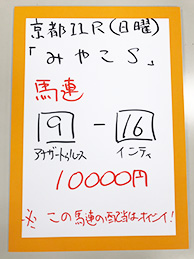 京都11R(日曜)
「みやこS」
馬連
9 - 16
アナザートゥルース インティ
10000円
※ この馬連の配当はオイシイ!